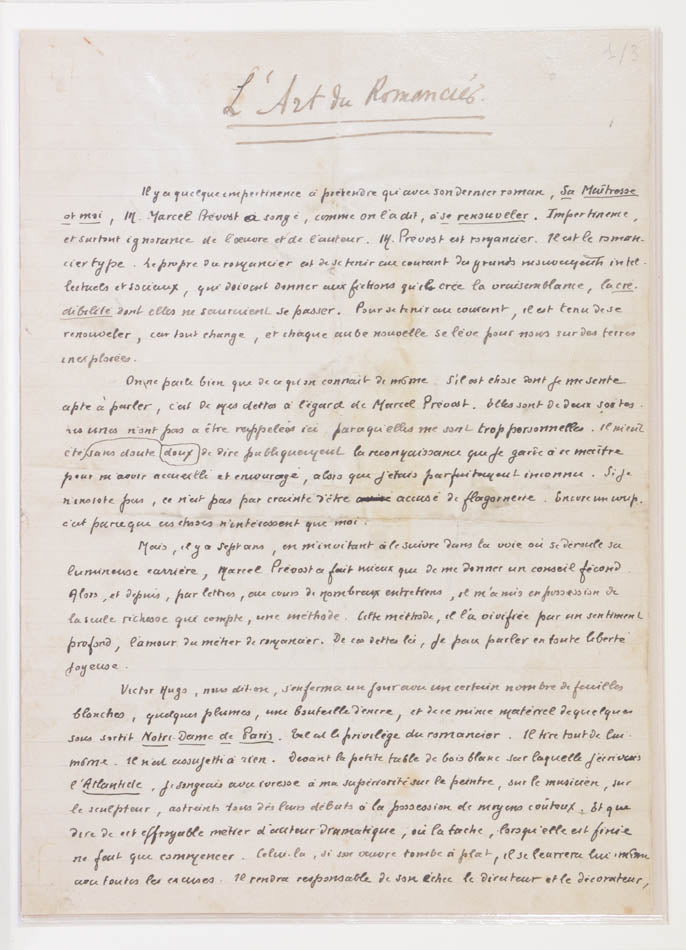 1/3
L'Art du Romancier.
Il y a quelque impertinence à prétendre qu'avec son dernier roman, Sa Maîtresse
et moi, M. Marcel Prévost a songé, comme on l'a dit, à se renouveler. Impertinence,
et surtout ignorance de l'œuvre et de l'auteur. M. Prévost est romancier. Il est le roman-
cier type. Le propre du romancier est de se tenir au courant des grands mouvements intel-
lectuels et sociaux, qui doivent donner aux fictions qu'il crée la vraisemblance, la cré-
dibilité dont elles ne sauraient se passer. Pour se tenir au courant, il est tenu de se
renouveler, car tout change, et chaque aube nouvelle se lève pour nous sur des terres
inexplorées.
On ne parle bien que de ce qu'on connaît de même. S'il est chose dont je me sente
apte à parler, c'est de mes dettes à l'égard de Marcel Prévost. Elles sont de deux sortes.
Les unes n'ont pas à être rappelées ici parce qu'elles me sont trop personnelles. Il m'eût
été sans doute doux de dire publiquement la reconnaissance que je garde à ce maître
pour m'avoir accueilli et encouragé, alors que j'étais parfaitement inconnu. Si je
n'insiste pas, ce n'est pas par crainte d'être accusé de flagornerie. Encore un coup,
c'est parce que ces choses n'intéressent que moi.
Mais, il y a sept ans, en m'invitant à le suivre dans la voie où se déroule sa
lumineuse carrière, Marcel Prévost a fait mieux que de me donner un conseil fécond.
Alors, et depuis, par lettres, au cours de nombreux entretiens, il m'a mis en possession de
la seule richesse qui compte, une méthode. Cette méthode, il l'a vivifiée par un sentiment
profond, l'amour du métier de romancier. De ces dettes là, je peux parler en toute liberté
joyeuse.
Victor Hugo, nous dit-on, s'enferma un jour avec un certain nombre de feuilles
blanches, quelques plumes, une bouteille d'encre, et de ce mince matériel de quelques
sous sortit Notre-Dame de Paris. Tel est le privilège du romancier. Il tire tout de lui-
même. Il n'est assujetti à rien. Devant la petite table de bois blanc sur laquelle j'écrivais
l'Atlantide, je songeais avec ivresse à ma supériorité sur le peintre, sur le musicien, sur
le sculpteur, astreints tous dès leurs débuts à la possession de moyens coûteux. Et que
dire de cet effroyable métier d'auteur dramatique, où la tâche, lorsqu'elle est finie
ne fait que commencer. Celui-là, si son œuvre tombe à plat, il se leurrera lui-même
avec toutes les excuses. Il rendra responsable de son échec le directeur et le décorateur,